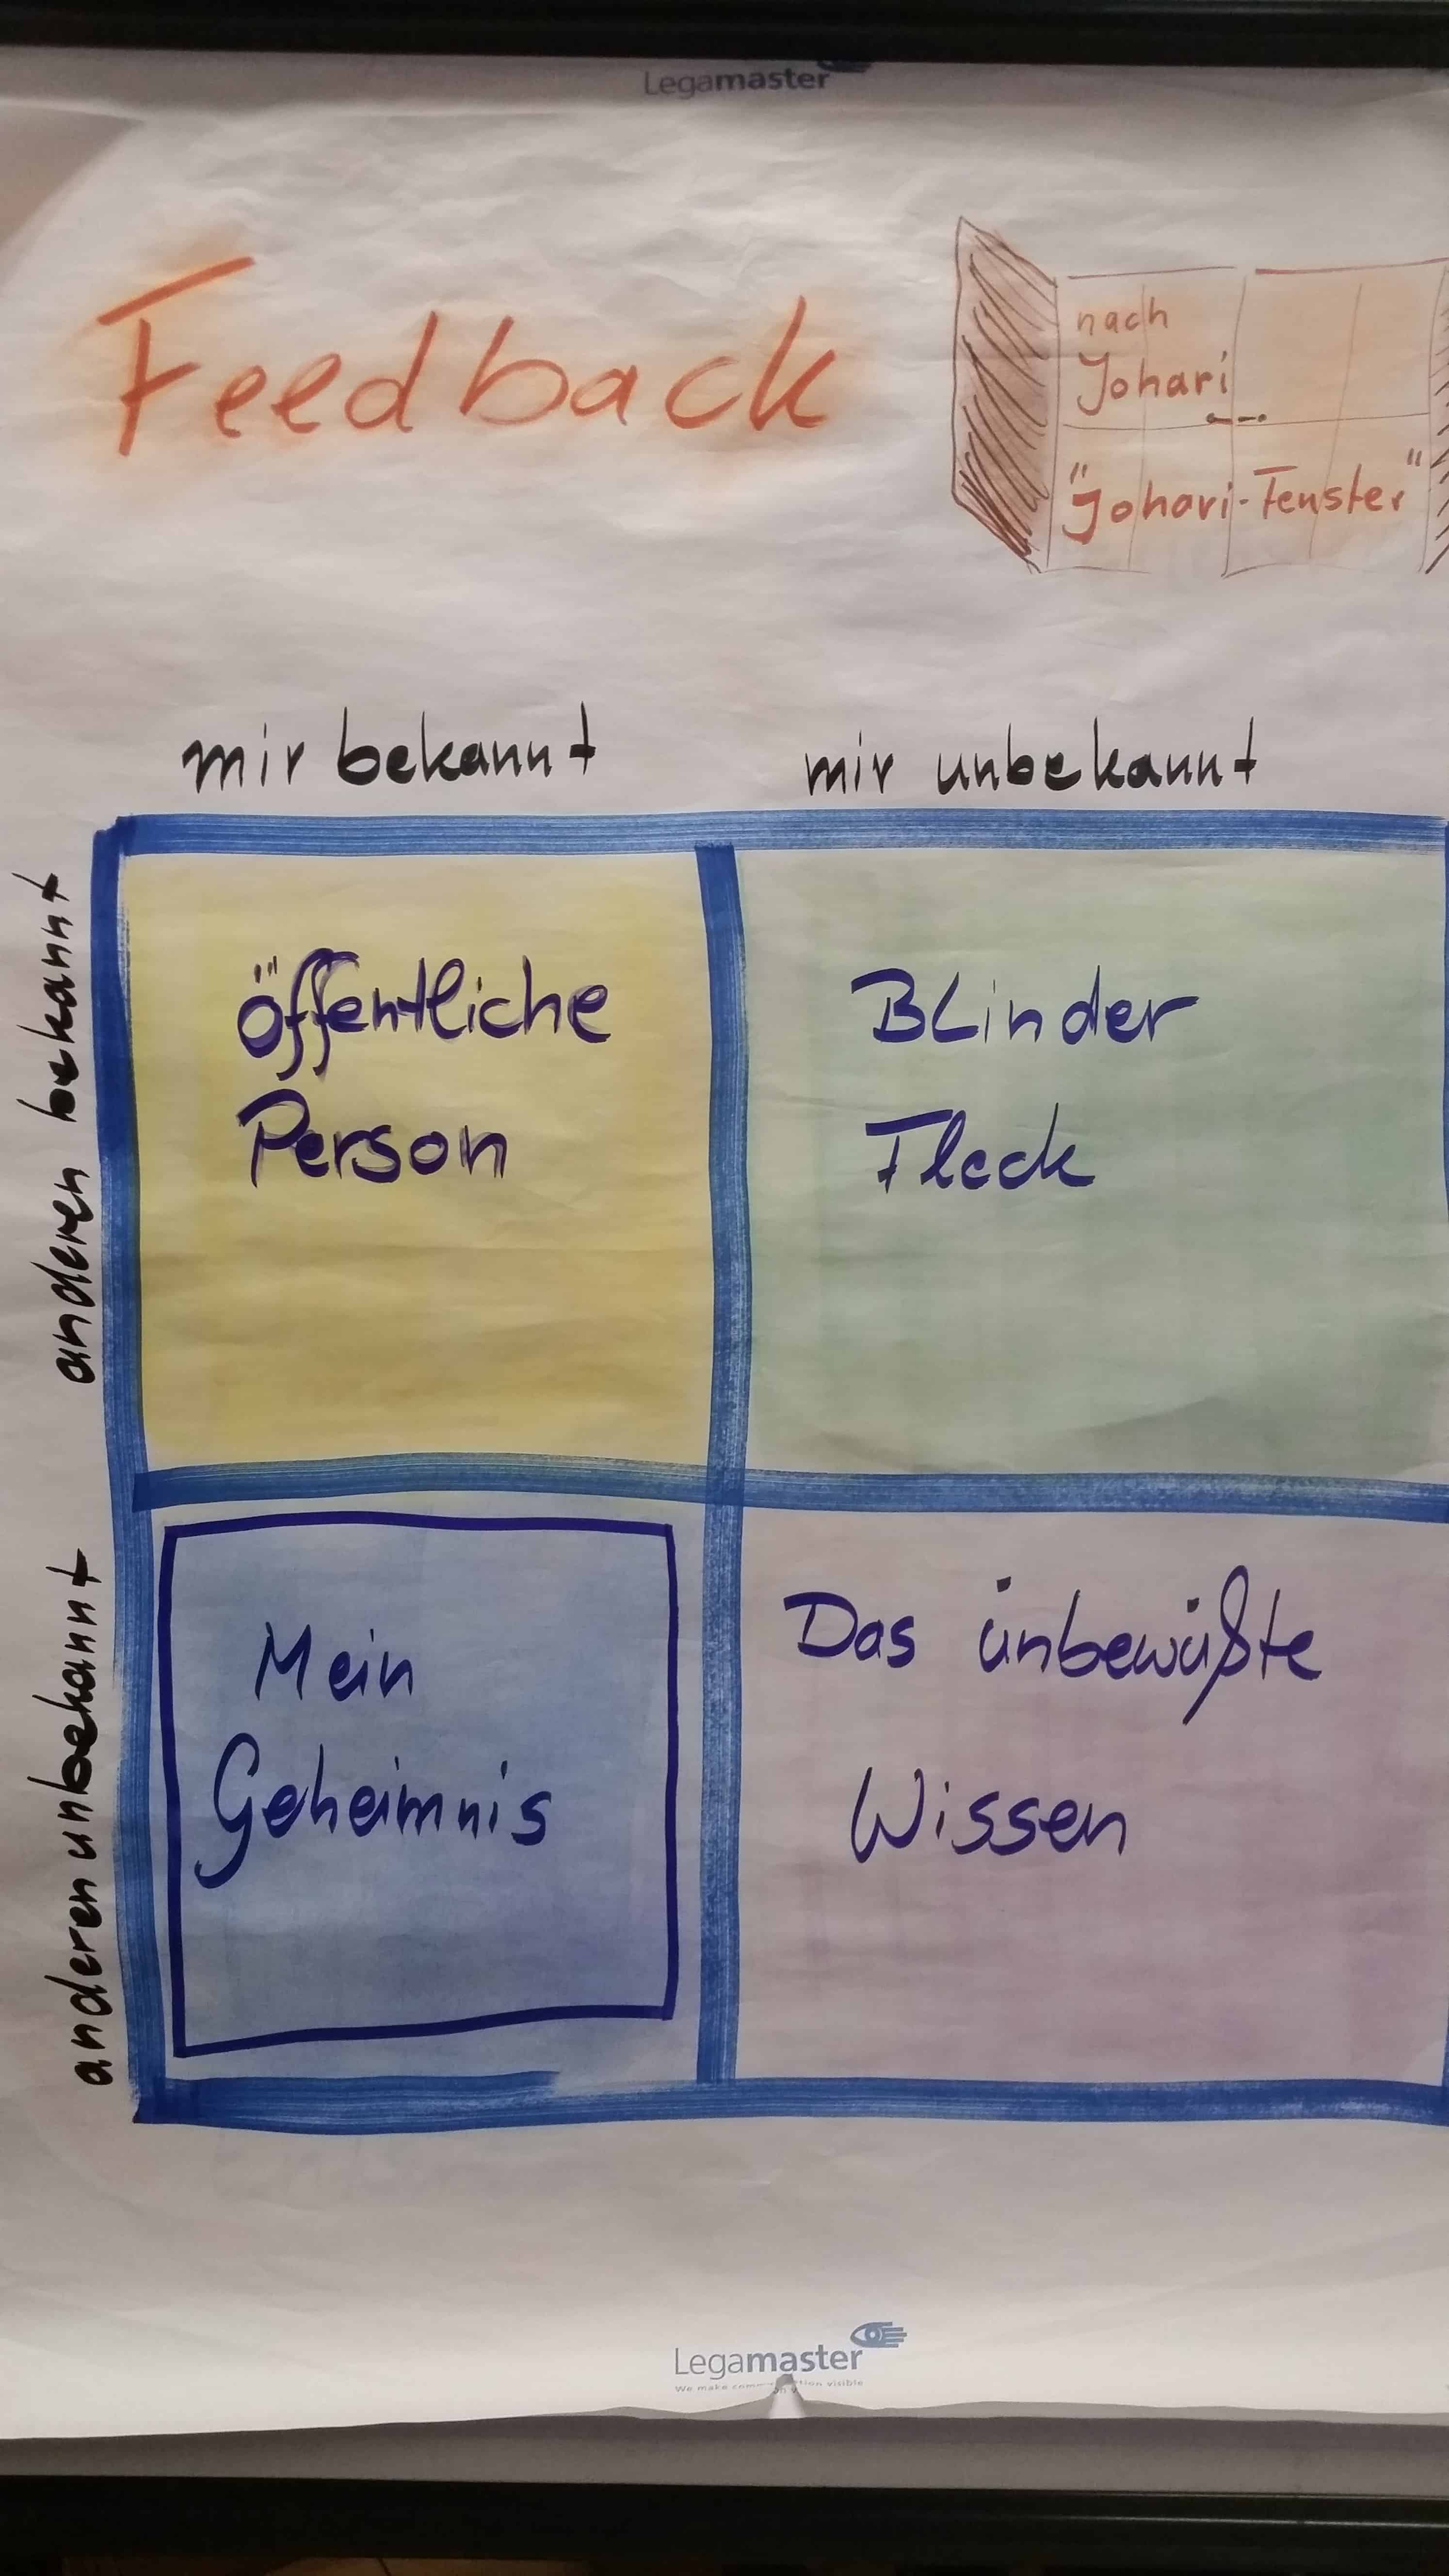 Legamaster
Feedback
nach
Johari
"Johari-Fenster"
mir bekannt
mir unbekannt
anderen bekannt
öffentliche
Person
Blinder
Fleck
anderen unbekannt
Mein
Geheimnis
Das unbewußte
Wissen
Legamaster
We make visible